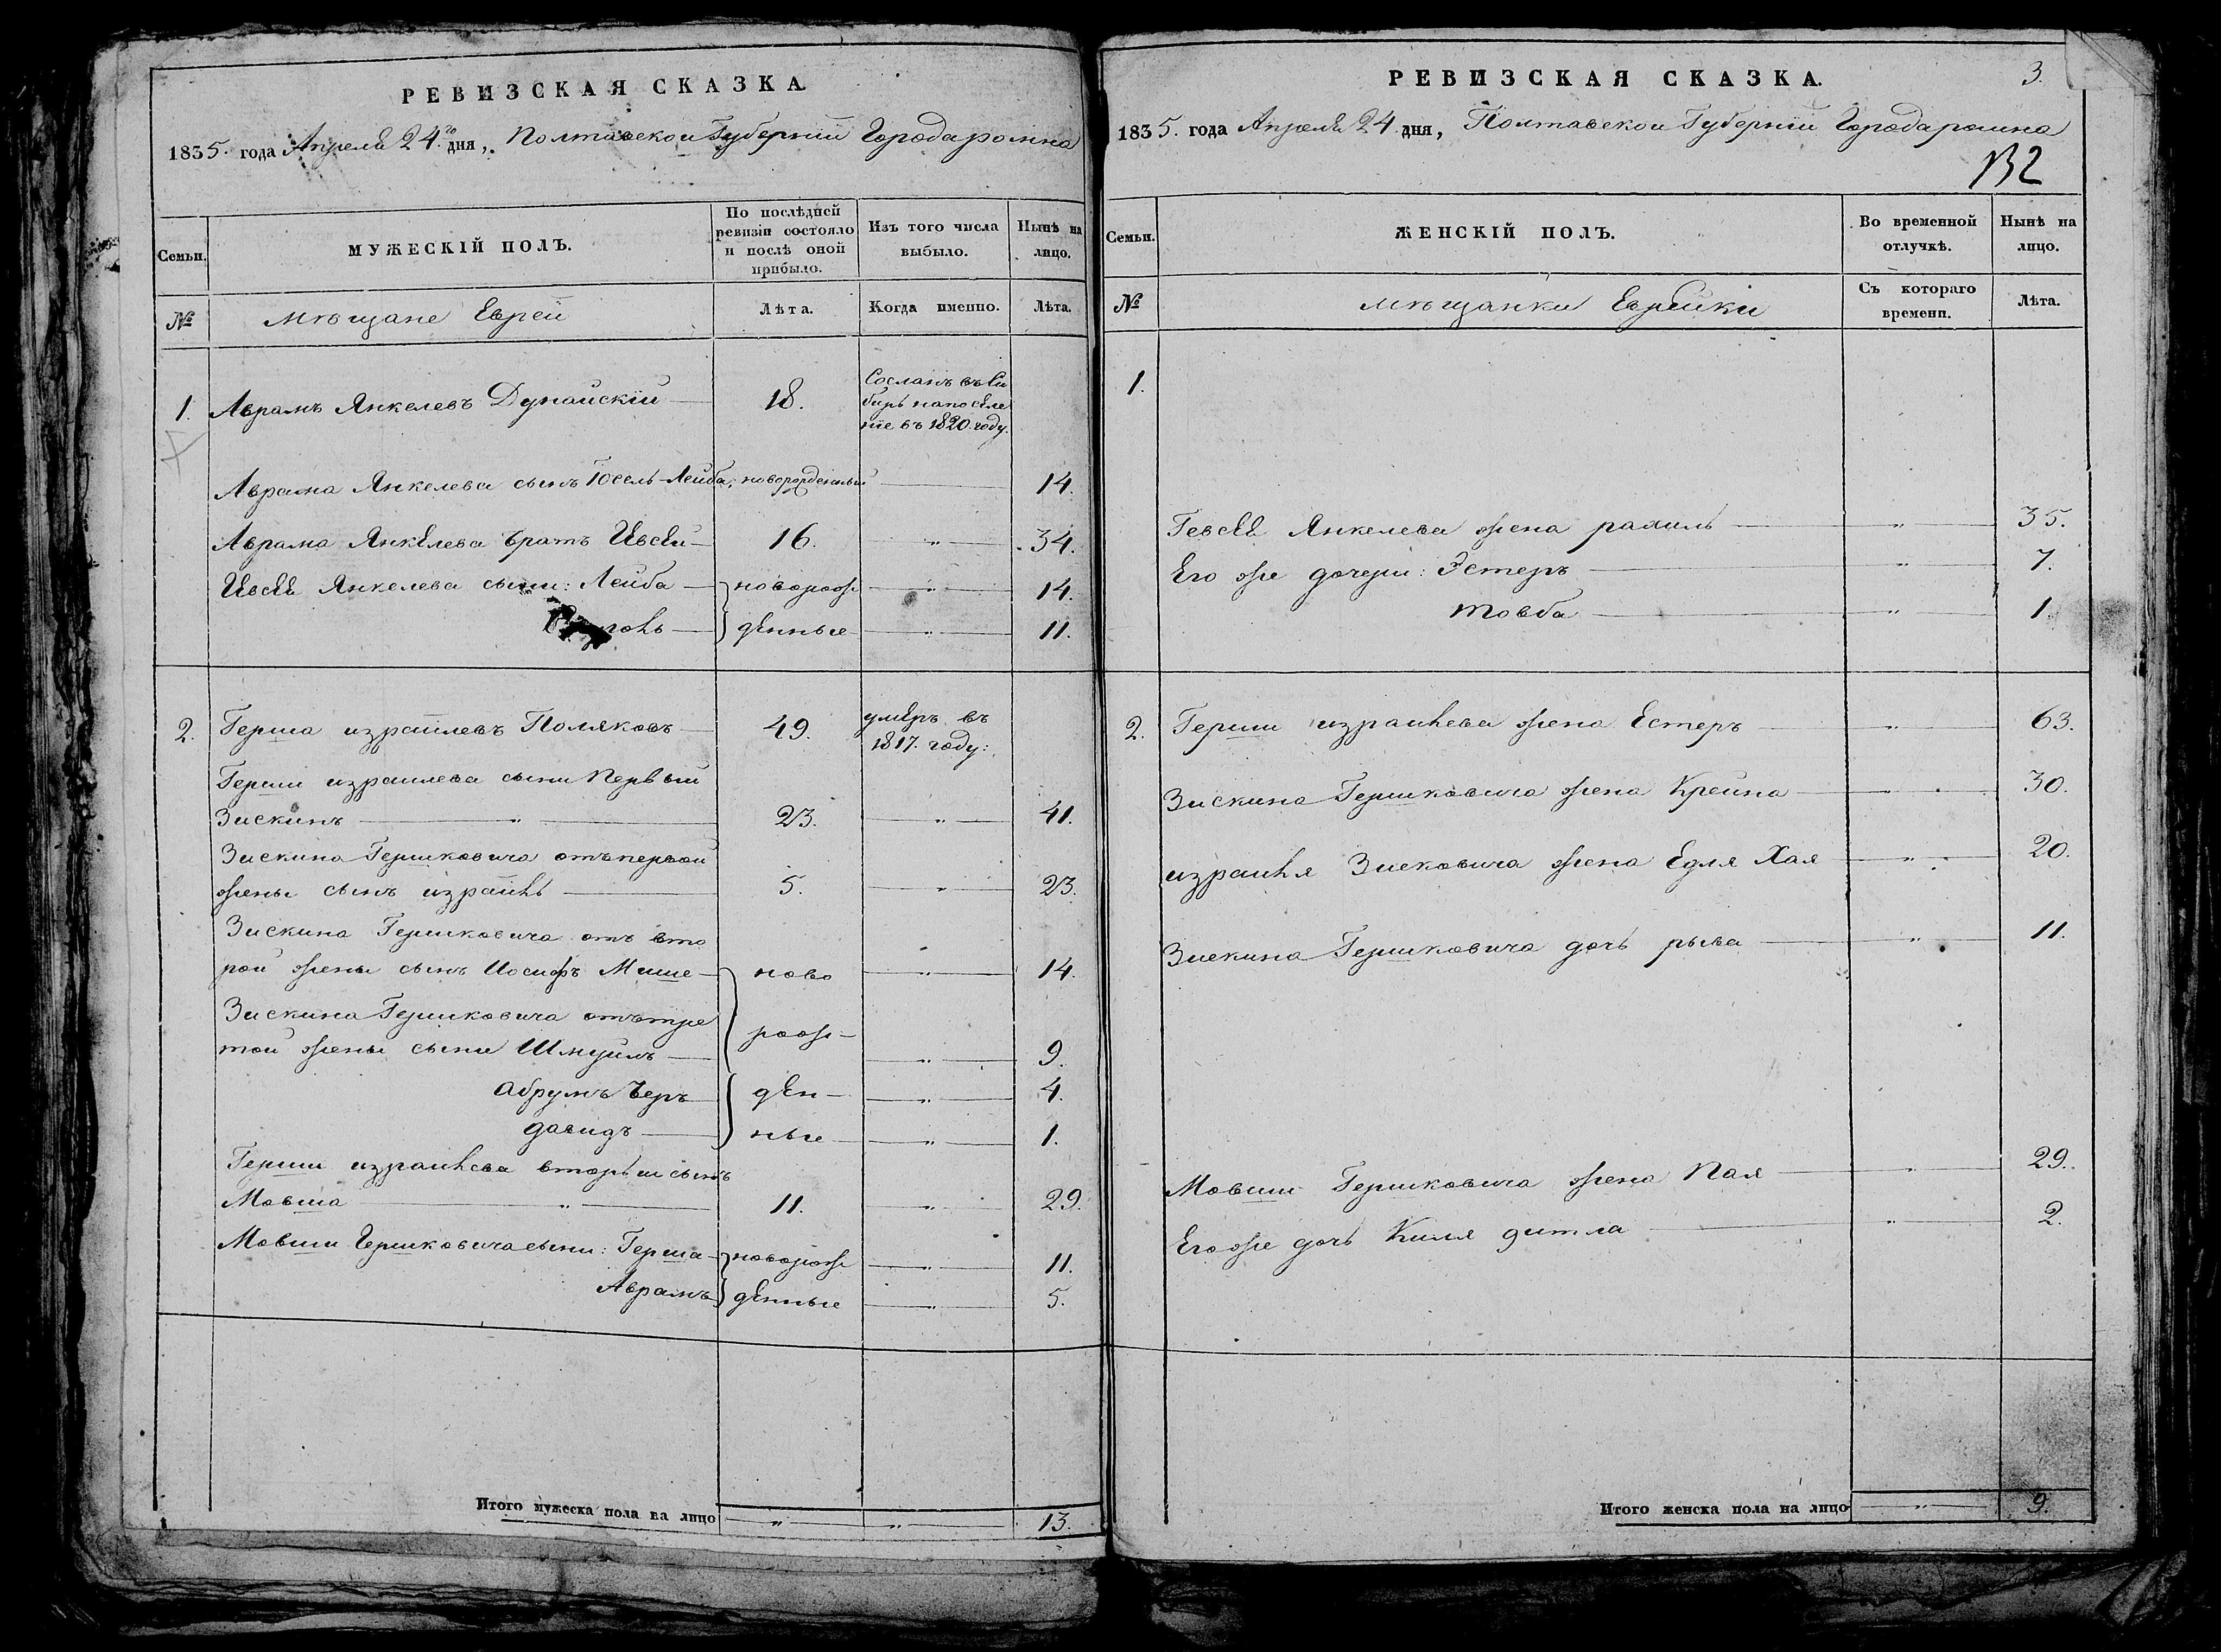 РЕВИЗСКАЯ СКАЗКА.
1835. года Апреля 24.го дня, Полтавской Губернии Города ромна
Семьи.
МУЖЕСКІЙ ПОЛЪ.
По послѣдней ревизіи состояло и послѣ оной прибыло.
Изъ того числа выбыло.
Нынѣ на лицо.
№
Мѣщане Евреи
Лѣта.
Когда именно.
Лѣта.
1. Аврамъ Янкелевъ Дунайскій 18. Сосланъ въ Си
биръ на поселе
ніе въ 1820. году.
Аврама Янкелева сынъ Іосель-Лейба, новорожденный 14.
Аврама Янкелева братъ Евсей 16. " 34.
Евсея Янкелева сыни: Лейба новорож " 14.
денные " 11.
2. Герша израилевъ Поляковъ 49. умеръ въ
1817. году.
Герши израилева сыни первый
Зискинъ " 23. " 41.
Зискина Гершковича отъ первой
жены сынъ израиль 5. " 23.
Зискина Гершковича отъ вто
рой жены сынъ Иосифъ Мише ново " 14.
Зискина Гершковича отъ тре
той жены сыни Шмуилъ рож " 9.
абрумъ Беръ ден " 4.
давидъ ные " 1.
Герши израилева вторый сынъ
Мовша " 11. " 29.
Мовши Гершковича сыни: Герша новорож " 11.
Аврамъ денные " 5.
Итого мужеска пола на лицо " " 13.
РЕВИЗСКАЯ СКАЗКА.
3.
1835. года Апреля 24. дня, Полтавской Губернии Города ромна
132
Семьи.
ЖЕНСКІЙ ПОЛЪ.
Во временной отлучкѣ.
Нынѣ на лицо.
№
мѣщанки Еврейки
Съ котораго времени.
Лѣта.
1.
Гевсея Янкелева жена рахиль " 35.
Его же дочери: Эстеръ " 7.
товба " 1.
2. Герши израилева жена Естеръ " 63.
Зискина Гершковича жена Крейна " 30.
израиля Зисковича жена Едля Хая " 20.
Зискина Гершковича дочь рыва " 11.
Мовши Гершковича жена Пая " 29.
Его же дочь Киля дитла " 2.
Итого женска пола на лицо " 9.